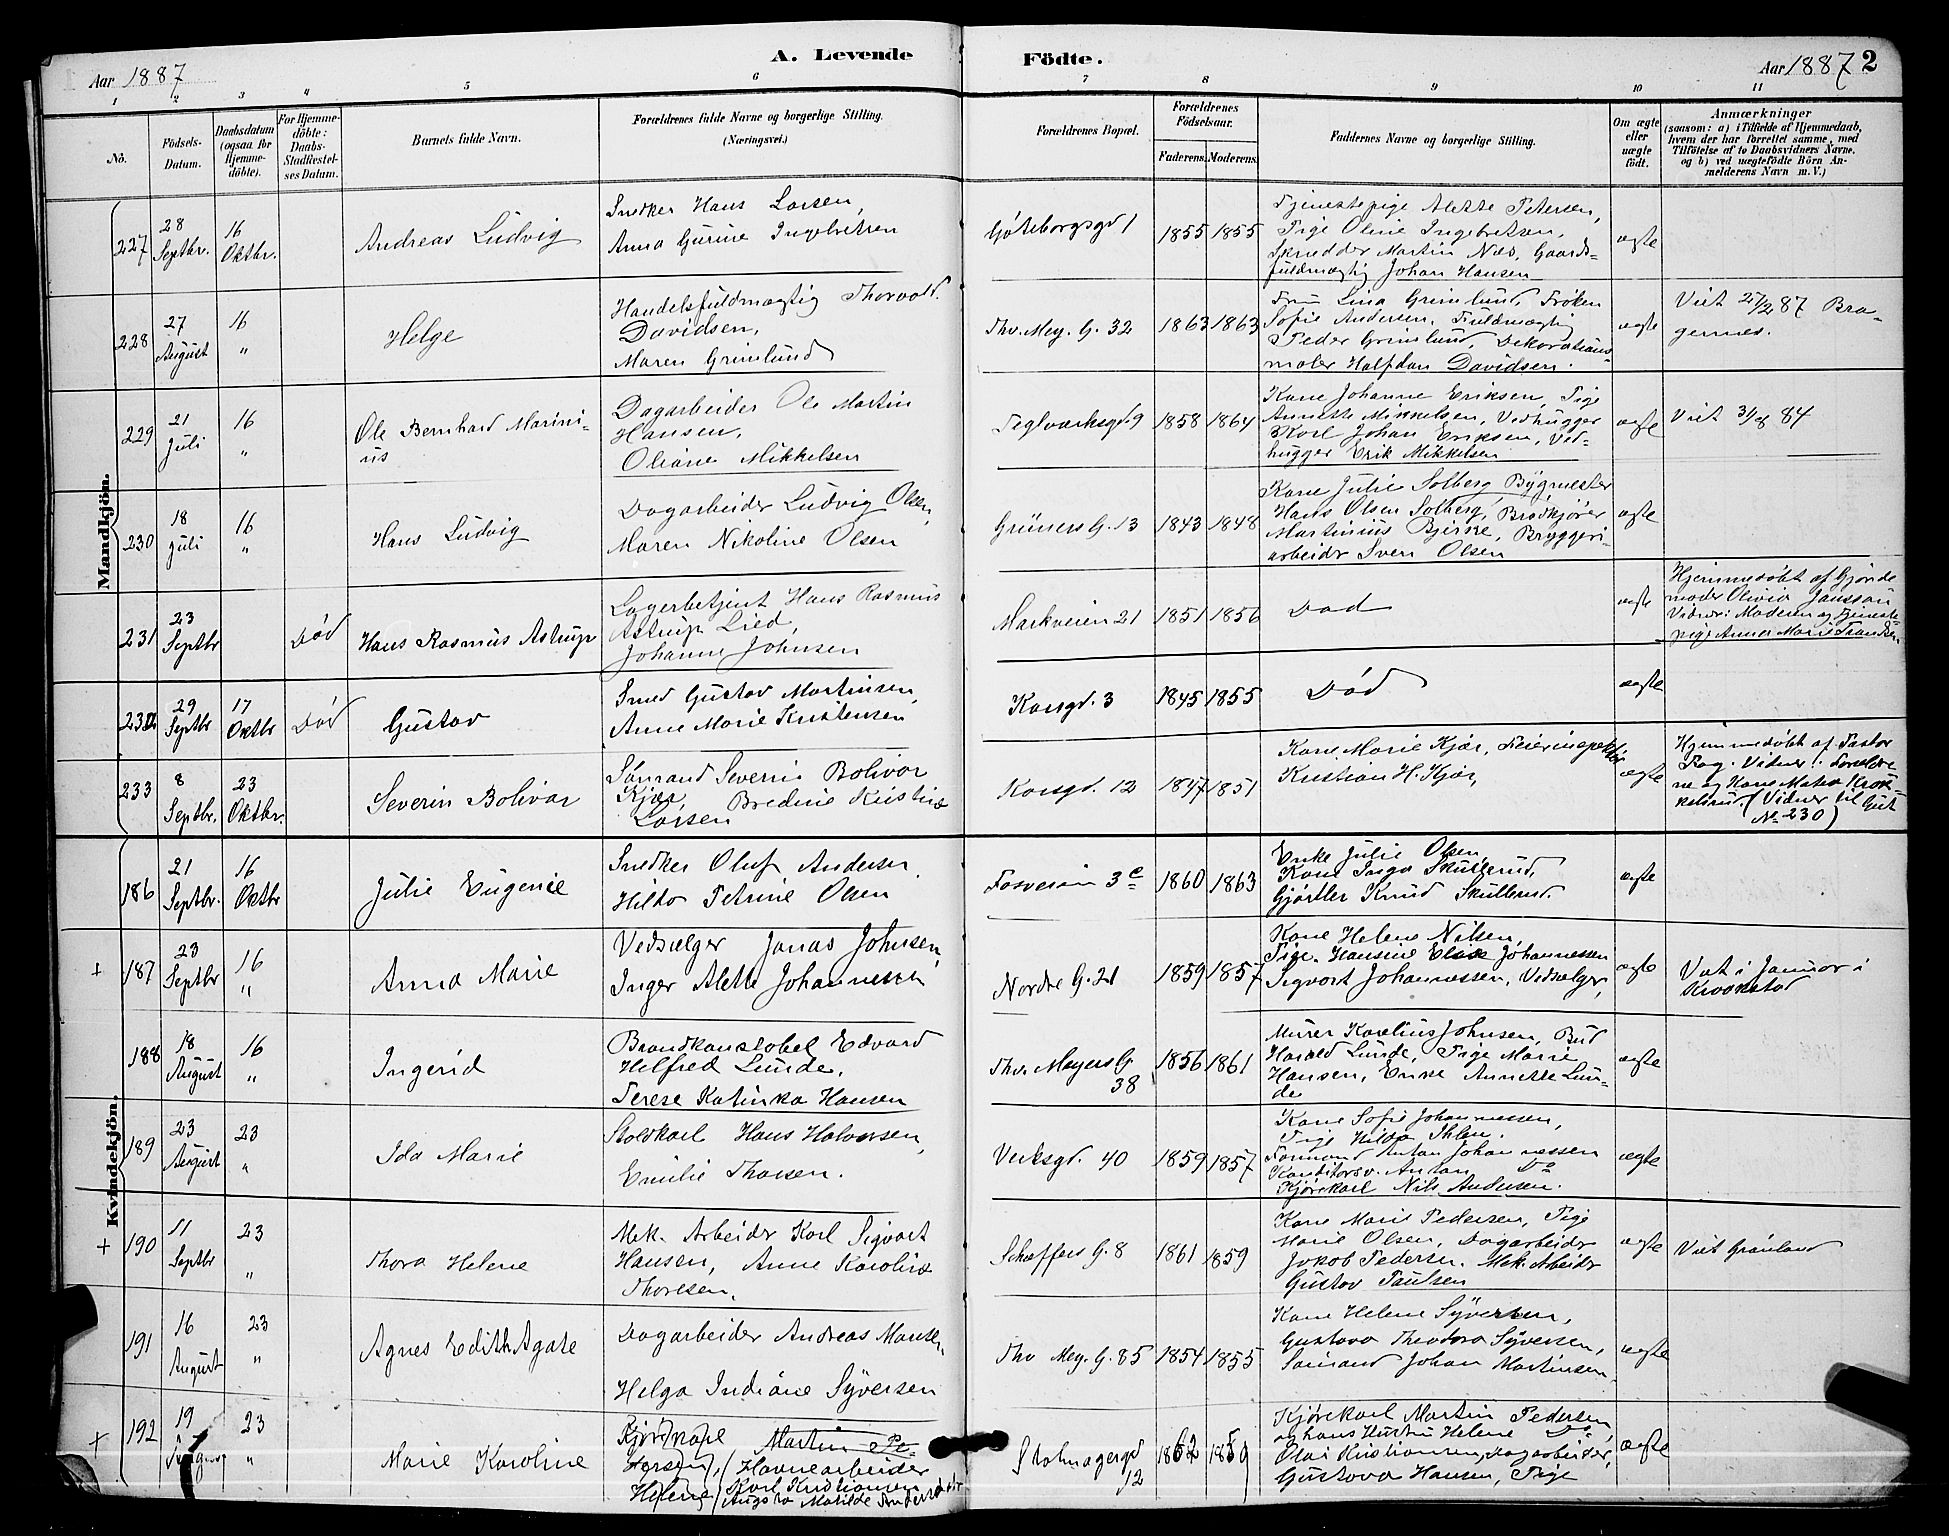 Aar 1887
A. Levende
Födte.
Aar 1887 2
1 2 3 4 5 6 7 8 9 10 11
No.
Födsels-
Datum.
Daabsdatum
(ogsaa for
Hjemme-
döbte).
For Hjemme-
döbte:
Daabs-
Stadfæstel-
ses Datum.
Barnets fulde Navn.
Forældrenes fulde Navne og borgerlige Stilling.
(Næringsvei.)
Forældrenes Bopæl.
Forældrenes
Födselsaar.
Faderens. Moderens.
Faddernes Navne og borgerlige Stilling.
Om ægte
eller
uægte
födt.
Anmærkninger
(saasom: a) i Tilfælde af Hjemmedaab,
hvem der har forrettet samme, med
Tilföielse af to Daabsvidners Navne,
og b) ved uægtefödte Börn An-
melderens Navn m. V.)
Mandkjön.
227
28
Septbr.
16
Oktbr.
Andreas Ludvig
Snedker Hans Larsen,
Anna Gurine Ingebretsen
Göteborgsgd 1
1855 1855
Tjenestepige Alette Petersen,
Pige Oline Ingebretsen,
Skrædder Martin Næs, Gaards-
fuldmægtig Johan Hansen
ægte
228
27
August
16
"
Helge
Handelsfuldmægtig Thorvald
Davidsen,
Maren Grimlund
Thv. Mey. G. 32
1863 1863
Fru Lina Grimlund, Frøken
Sofie Andersen, Fuldmægtig
Peder Grimlund, Dekorations-
maler Halfdan Davidsen.
ægte
Viet 27/2 87 Bra-
gernes.
229
21
Juli
16
"
Ole Bernhard Marini-
us
Dagarbeider Ole Martin
Hansen,
Oliane Mikkelsen
Teglværksgd. 9
1858 1864
Kone Johanne Eriksen, Pige
Annette Mikkelsen, Vedhugger
Karl Johan Eriksen, Ved-
hugger Erik Mikkelsen
ægte
Viet 31/8 84
230
18
Juli
16
"
Hans Ludvig
Dagarbeider Ludvig Olsen,
Maren Nikoline Olsen
Grüners G. 13
1843 1848
Kone Julie Solberg, Bygmester
Hans Olsen Solberg, Brødkjører
Martinius Bjerke, Bryggeri-
arbeidr Sven Olsen
ægte
231
23
Septbr
Død
Hans Rasmus Astrup
Lagerbetjent Hans Rasmus
Astrup Lied,
Johanne Johnsen
Markveien 21
1851 1856
Død
ægte
Hjemmedöbt af Gjorde
moder Olivia Janssøn
Vidner: Moderen og Tjeneste-
pige Anna Marie Frandsen
232
29
Septbr
17
Oktbr
Død
Gustav
Smed Gustav Martinsen,
Anne Marie Kristensen
Korsgd. 3
1845 1855
Død
ægte
233
8
Septbr.
23
Oktbr.
Severin Bolivar
Sømand Severin Bolivar
Kjær, Bredine Kristine
Larsen
Korsgd. 12
1847 1851
Kone Marie Kjær, Feierinspektør
Kristian H. Kjær,
ægte
Hjemmedöbt af Pastor
Vidner: Forældre
ne og Hans
(Vidner til Gut
No 230)
Kvindekjön.
186
21
Septbr.
16
Oktbr
Julie Eugenie
Snedker Oluf Andersen
Hilda Petrine Olsen
Fosveien 3 c
1860 1863
Enke Julie Olsen
Kone Inga Skullerud,
Gjørtler Knud Skullerud.
ægte
+ 187
23
Septbr
16
"
Anna Marie
Vedsælger Jonas Johnsen,
Inger Alette Johannessen
Nordre G. 21
1859 1857
Kone Helene Nilsen,
Pige Hansine Elise Johannessen
Sigvart Johannessen, Vedsælger,
ægte
Viet i Januar i
Kraakstad
188
18
August
16
"
Ingerid
Brandkonstabel Edvard
Hilfred Lunde,
Terese Katinka Hansen
Thv. Meyers G
38
1856 1861
Murer Karelius Johnsen, Bud
Harald Lunde, Pige Marie
Hansen, Enke Annette Lun-
de
ægte
189
23
August
23
"
Ida Marie
Staldkarl Hans Halvorsen,
Emilie Thorsen.
Verksgd. 40
1859 1857
Kone Sofie Johannessen,
Pige Hilda Ihlen.
Formand Antan Johannessen
Konditorsv. Antan Do
Kjørekarl Nils Andersen.
ægte
+ 190
11
Septbr
23
"
Thora Helene
Mek. Arbeidr Karl Sigvart
Hansen, Anne Karoline
Thoresen,
Schæffers G. 8
1861 1859
Kone Marie Pedersen, Pige
Marie Olsen, Dagarbeidr
Jakob Pedersen. Mek. Arbeidr
Gustav Paulsen
ægte
Viet Grønland
191
16
August
23
"
Agnes Edith Agate
Dagarbeider Andreas Hansen,
Helga Indiane Syversen
Thv Mey. G. 85
1854 1855
Kone Helene Syversen,
Gustava Theodora Syversen,
Sømand Johan Martinsen.
ægte
+ 192
19
August
23
"
Marie Karoline
Kjørekarl Martin Pe
dersen, (Havnearbeider
Helene (Karl Kristiansen
Augusta Matilde
Stolmagergd
12
1862 1859
Kjørekarl Martin Pedersen,
og hans Hustru Helene Do,
Olai Kristiansen, Dagarbeider,
Gustava Hansen, Pige
ægte